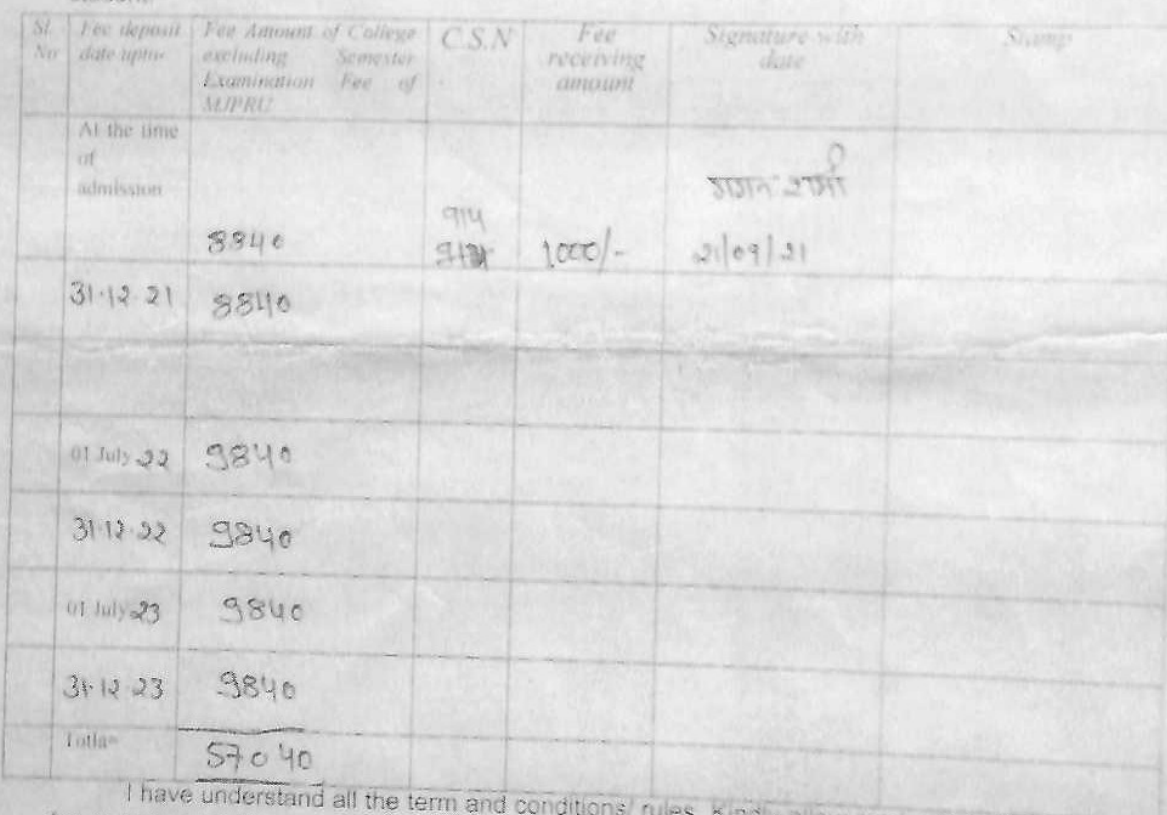 Sl. No
Fee deposit date upto
Fee Amount of College excluding Semester Examination Fee of MJPRU
C.S.N
Fee receiving amount
Signature with date
Stamp
At the time of admission
8840
1000/-
गगन शर्मा
21/09/21
31.12.21 8840
01 July 22 9840
31.12.22 9840
01 July 23 9840
31.12.23 9840
Totla= 57040
I have understand all the term and conditions/ rules. Kindly